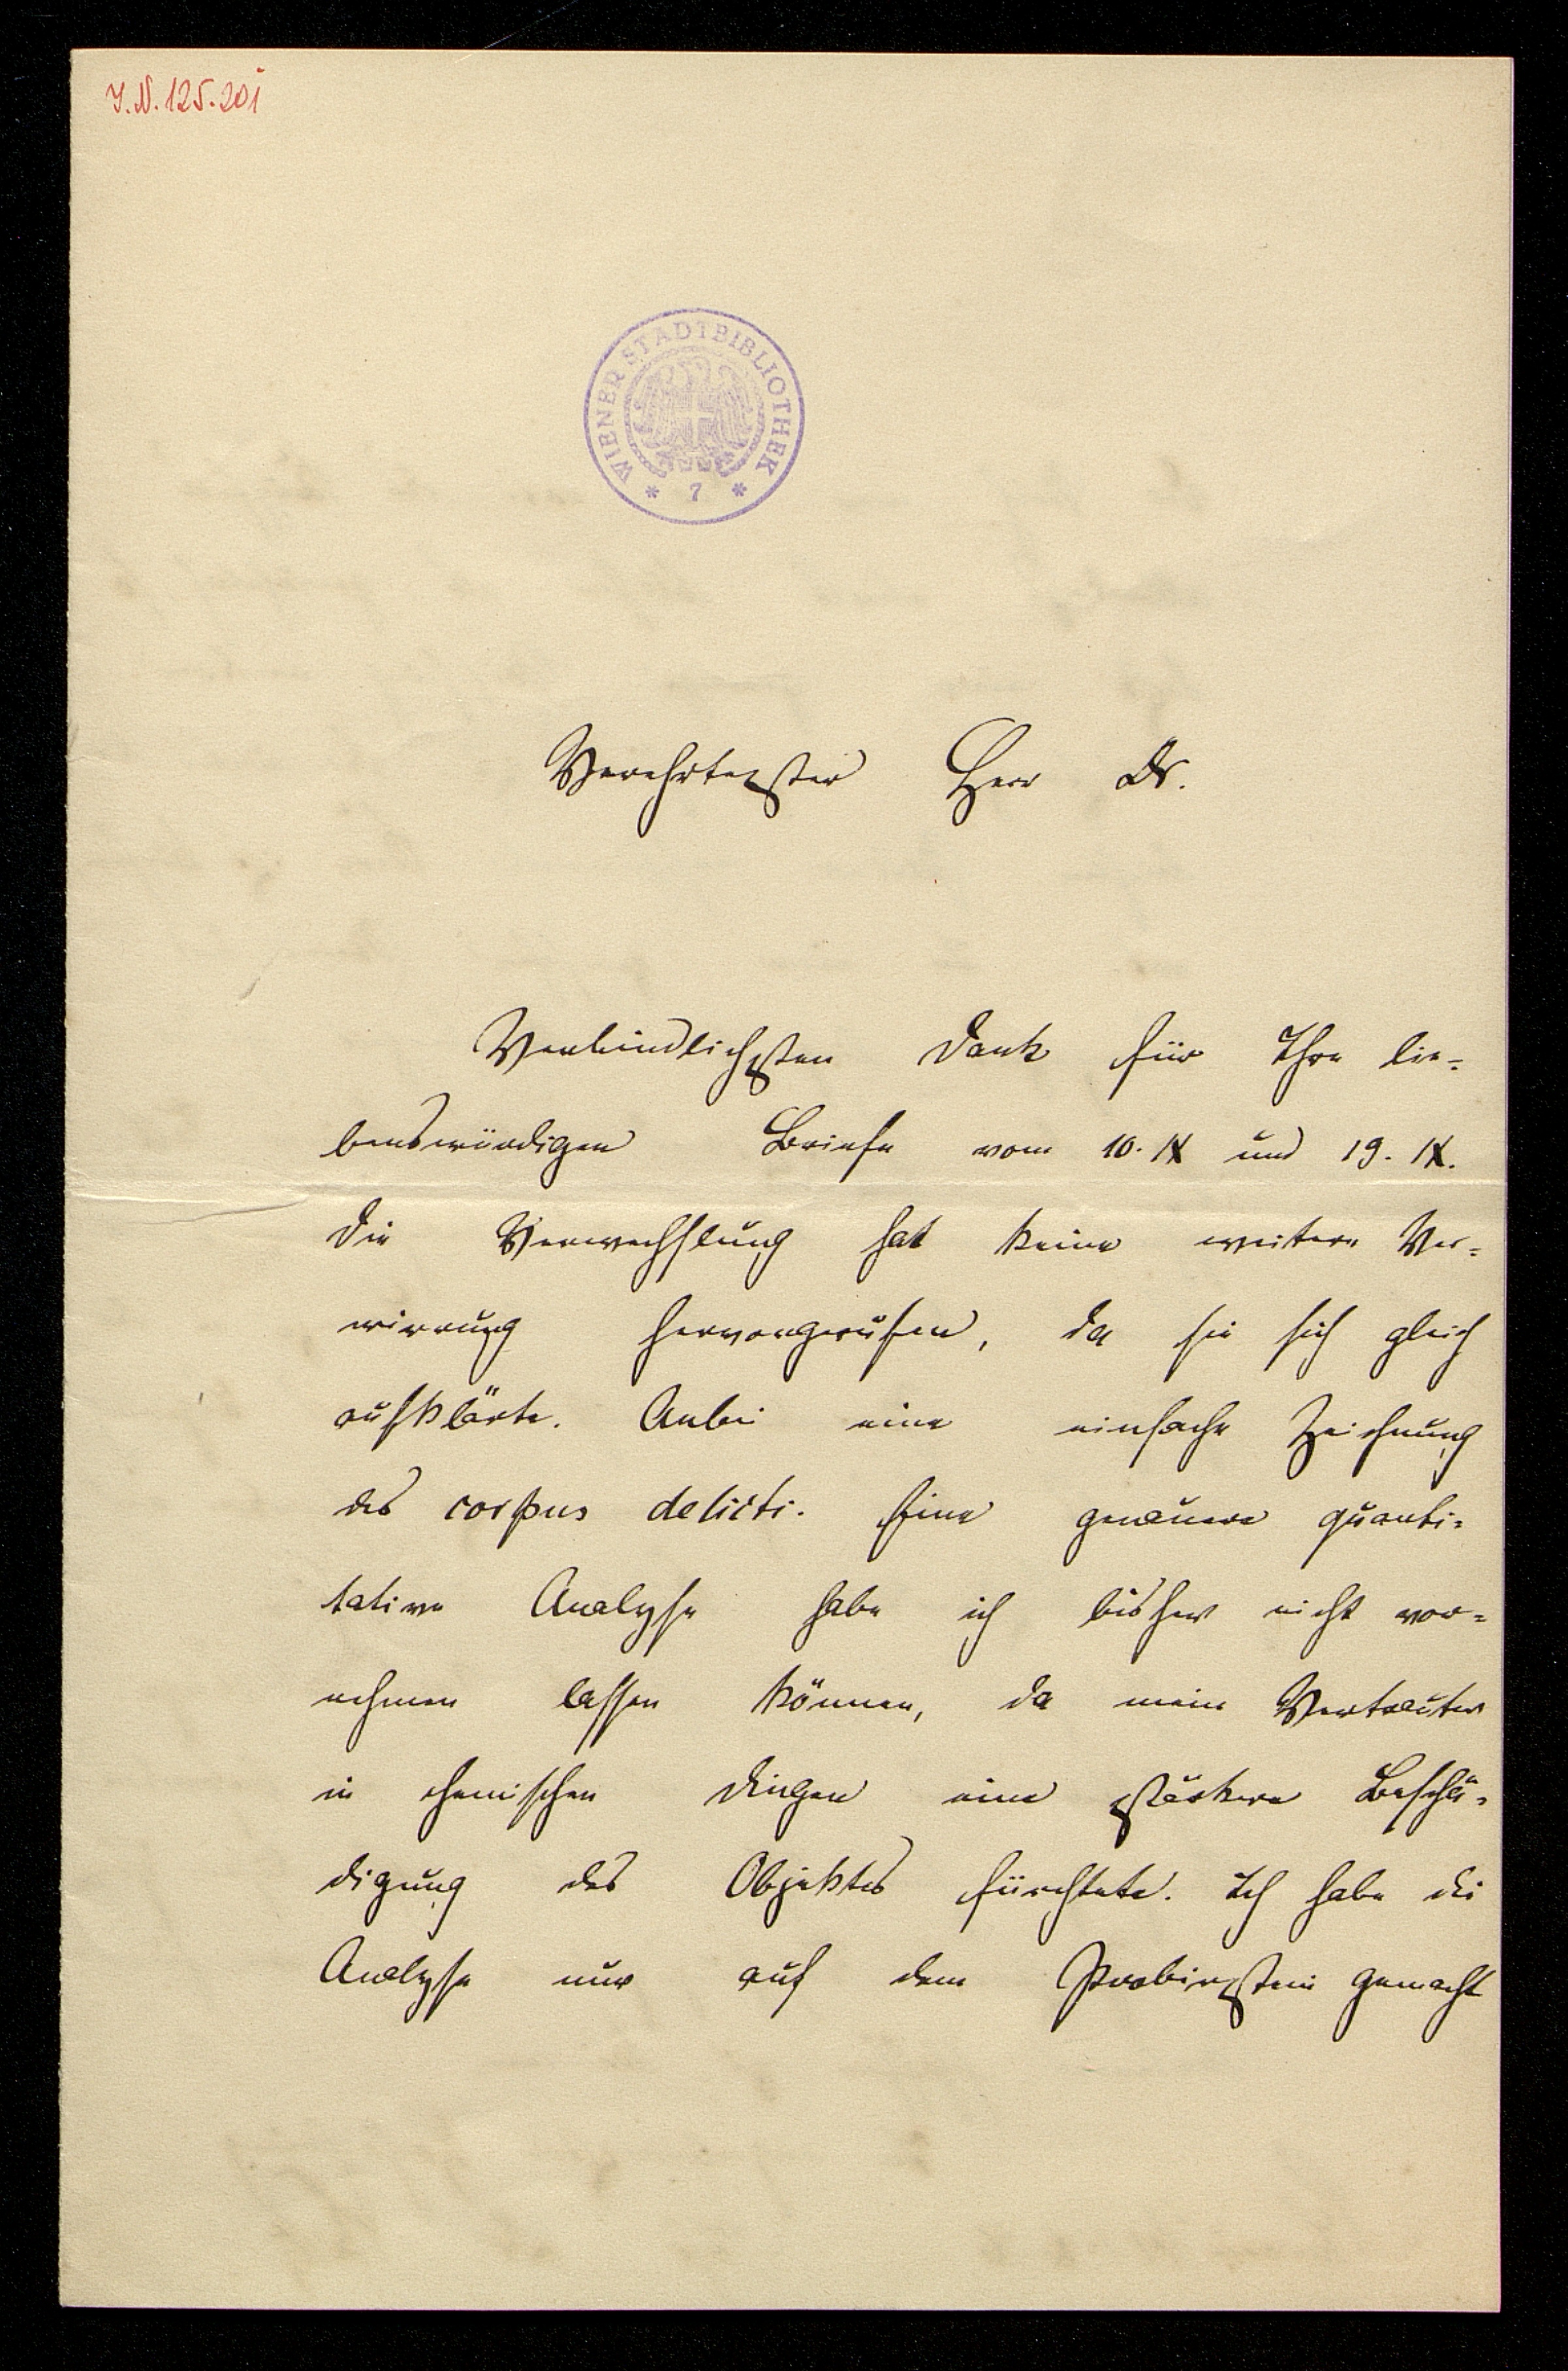 I.N. 125.201
WIENER STADTBIBLIOTHEK
* 7 *
Verehrtester Herr Dr.
Verbindlichsten Dank für Ihre lie=
benswürdigen Briefe vom 10. IX und 19. IX.
Die Verwechslung hat keine weitere Ver=
wirrung hervorgerufen, da sie sich gleich
aufklärte. Anbei eine einfache Zeichnung
des corpus delicti. Eine genauere quanti=
tative Analyse habe ich bisher nicht vor=
nehmen lassen können, da mein Vertrauter
in chemischen Dingen eine stärkere Beschä=
digung des Objektes fürchtete. Ich habe die
Analyse nur auf dem Probirstein gemacht